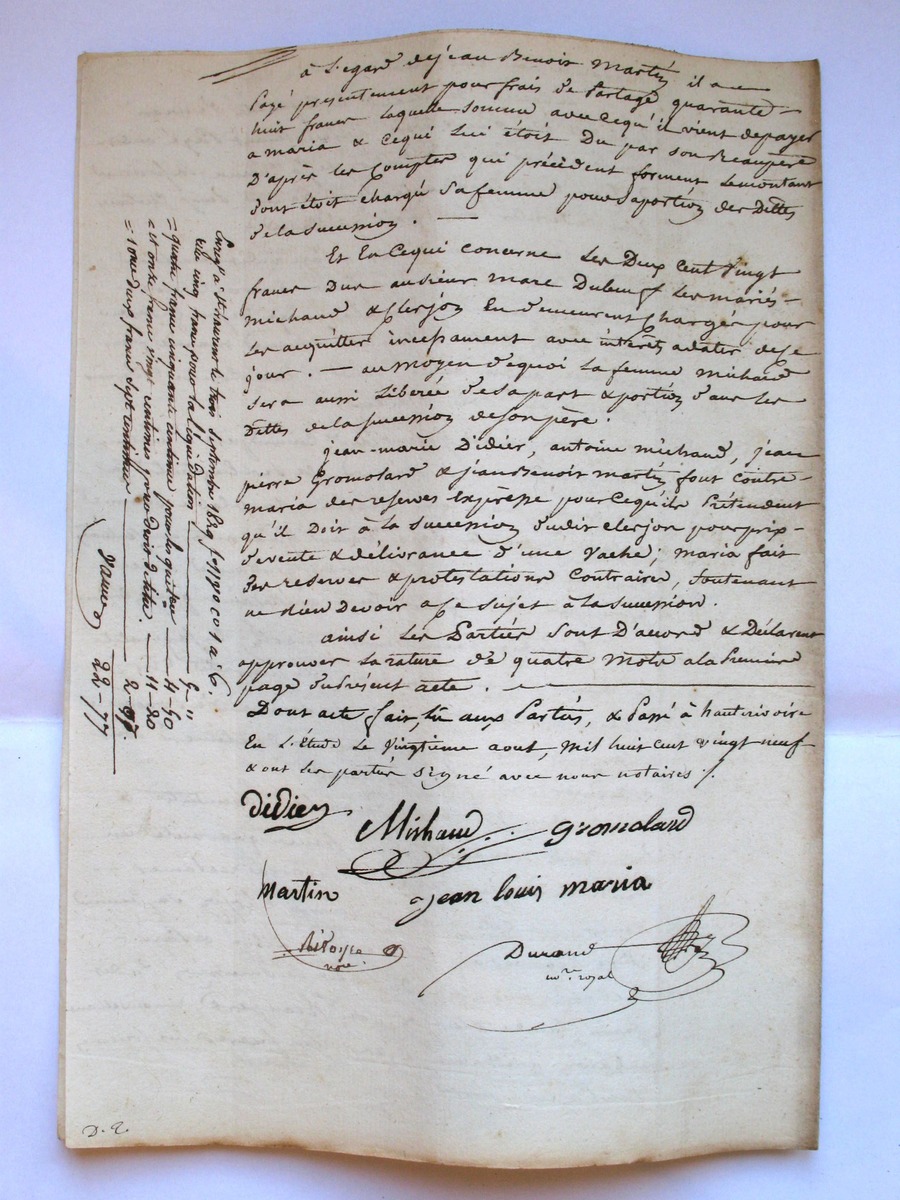 à L'egard de jean Benoit martin il a
Payé présentement pour frais de Partage quarante-
huit francs laquelle somme avec cequ'il vient depayer
a maria & cequi Lui étoit Du par son Beaupère
D'après les Comptes qui précèdent forment Lemontant
dont étoit chargé Safemme pour Saportion des Dettes
de la succession. —
Et En Cequi concerne Les Deux Cent Vingt
francs Dus ausieur marc Dubeuf Les mariés-
michaud & Clerjon En demeurent Chargés pour
Les acquitter incessament avec intérêts adater dece
jour. — au moyen dequoi La femme michaud
Sera aussi Libérée desapart & portion dans Les
Dettes de la succession deson père.
jean-marie Didier, antoine michaud, jean
pierre Gromolard & jean Benoit martin font contre-
maria des reserves Expresse pour Cequ'ils Prétendent
qu'il Doit à la succession dudit clerjon pour prix-
devente & délivrance d'une Vache; maria fait
des reserves & protestations Contraires, Soutenant
ne rien Devoir a ce sujet à la succession.
ainsi Les Parties sont D'accord & Déclarent
approuver La rature de quatre mots a la Première
page du présent acte. —
Dont acte fait, Lu aux Parties, & Passé à hauterivoire
En L'étude Le Vingtième aout, mil huit cent vingt neuf
& ont Les parties signé avec nous notaires ./.
didier
Michaud
gromolard
martin
jean louis maria
nore.
Durand
nore royal
Enregé à St Laurent le trois septembre 1829 fo 190 co 1 a 6.
cinq francs pour la liquidation — 5-"
= quatre francs cinquante centimes pour les quittances — 4-50
= et onze francs vingt centimes pour droit de titre. — 11-20
= et deux francs sept centimes — 2-07.
22-77
D. E.